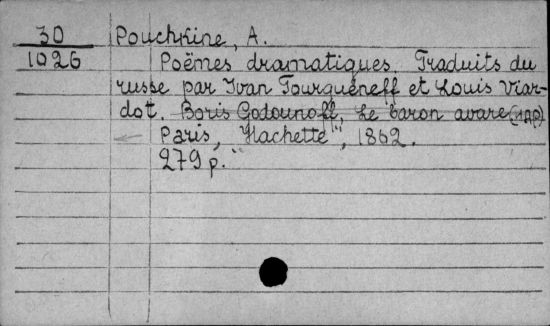 30
1026
Pouchkine, A.
Poëmes dramatiques. Traduits du
russe par Ivan Tourguéneff et Louis Viar-
dot. Boris Godounoff, Le baron avare
Paris, "Hachette", 1862.
279 p.